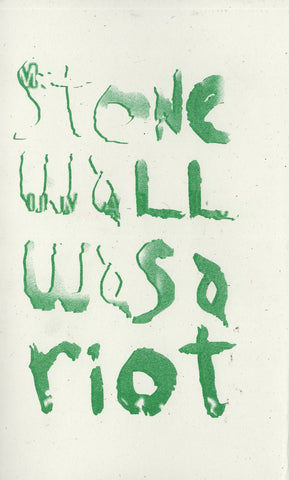 Stone
WALL
WaS a
riot